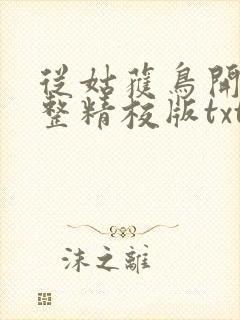 從姑蘿鳥開
整精校版txt
沫之離